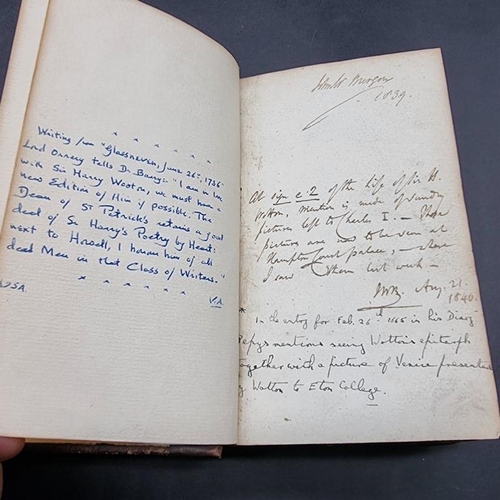 Writing from "Glassneven, June 26th 1736"
Lord Orrery tells Dr Barry: "I am in love
with Sir Harry Wooton, we must have
new Edition of Him if possible. The
Dean of St Patrick's retains a good
deal of Sr Harry's Poetry by Heart.
next to Harvell, I honour him of all
dead Men in that Class of Writers."
V.A.
John W Burgon
1839.
At sign c.2 of the Life of Sir H.
Wotton, mention is made of sundry
pictures left to Charles I. — Those
pictures are now to be seen at
Hampton Court palace, — where
I saw them last week —
JWB. Aug. 21.
1840.
* In the entry for Feb. 26th 1666 in his Diary
Pepys mentions seeing Wotton's epitaph
together with a picture of Venice presented
by Wotton to Eton College.